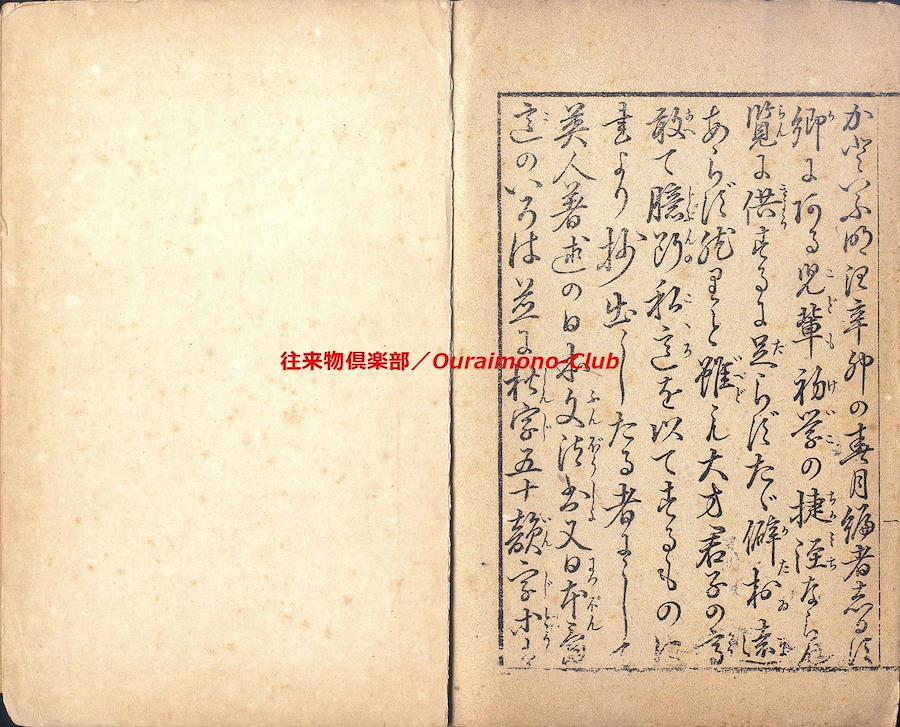 這のいろは並に 字五十韻字等は
英人著述の日本文法書又日本
書より抄出したる者にして
敢て臆断私意を以てするものに
あらず然りと雖も大方君子の高
覧に供するに足らずたゞ僻村遠
郷に阿る児輩初学の捷径ならん
かといふ明治辛卯の春月編者志るす
一
往来物倶楽部／Ouraimono-Club